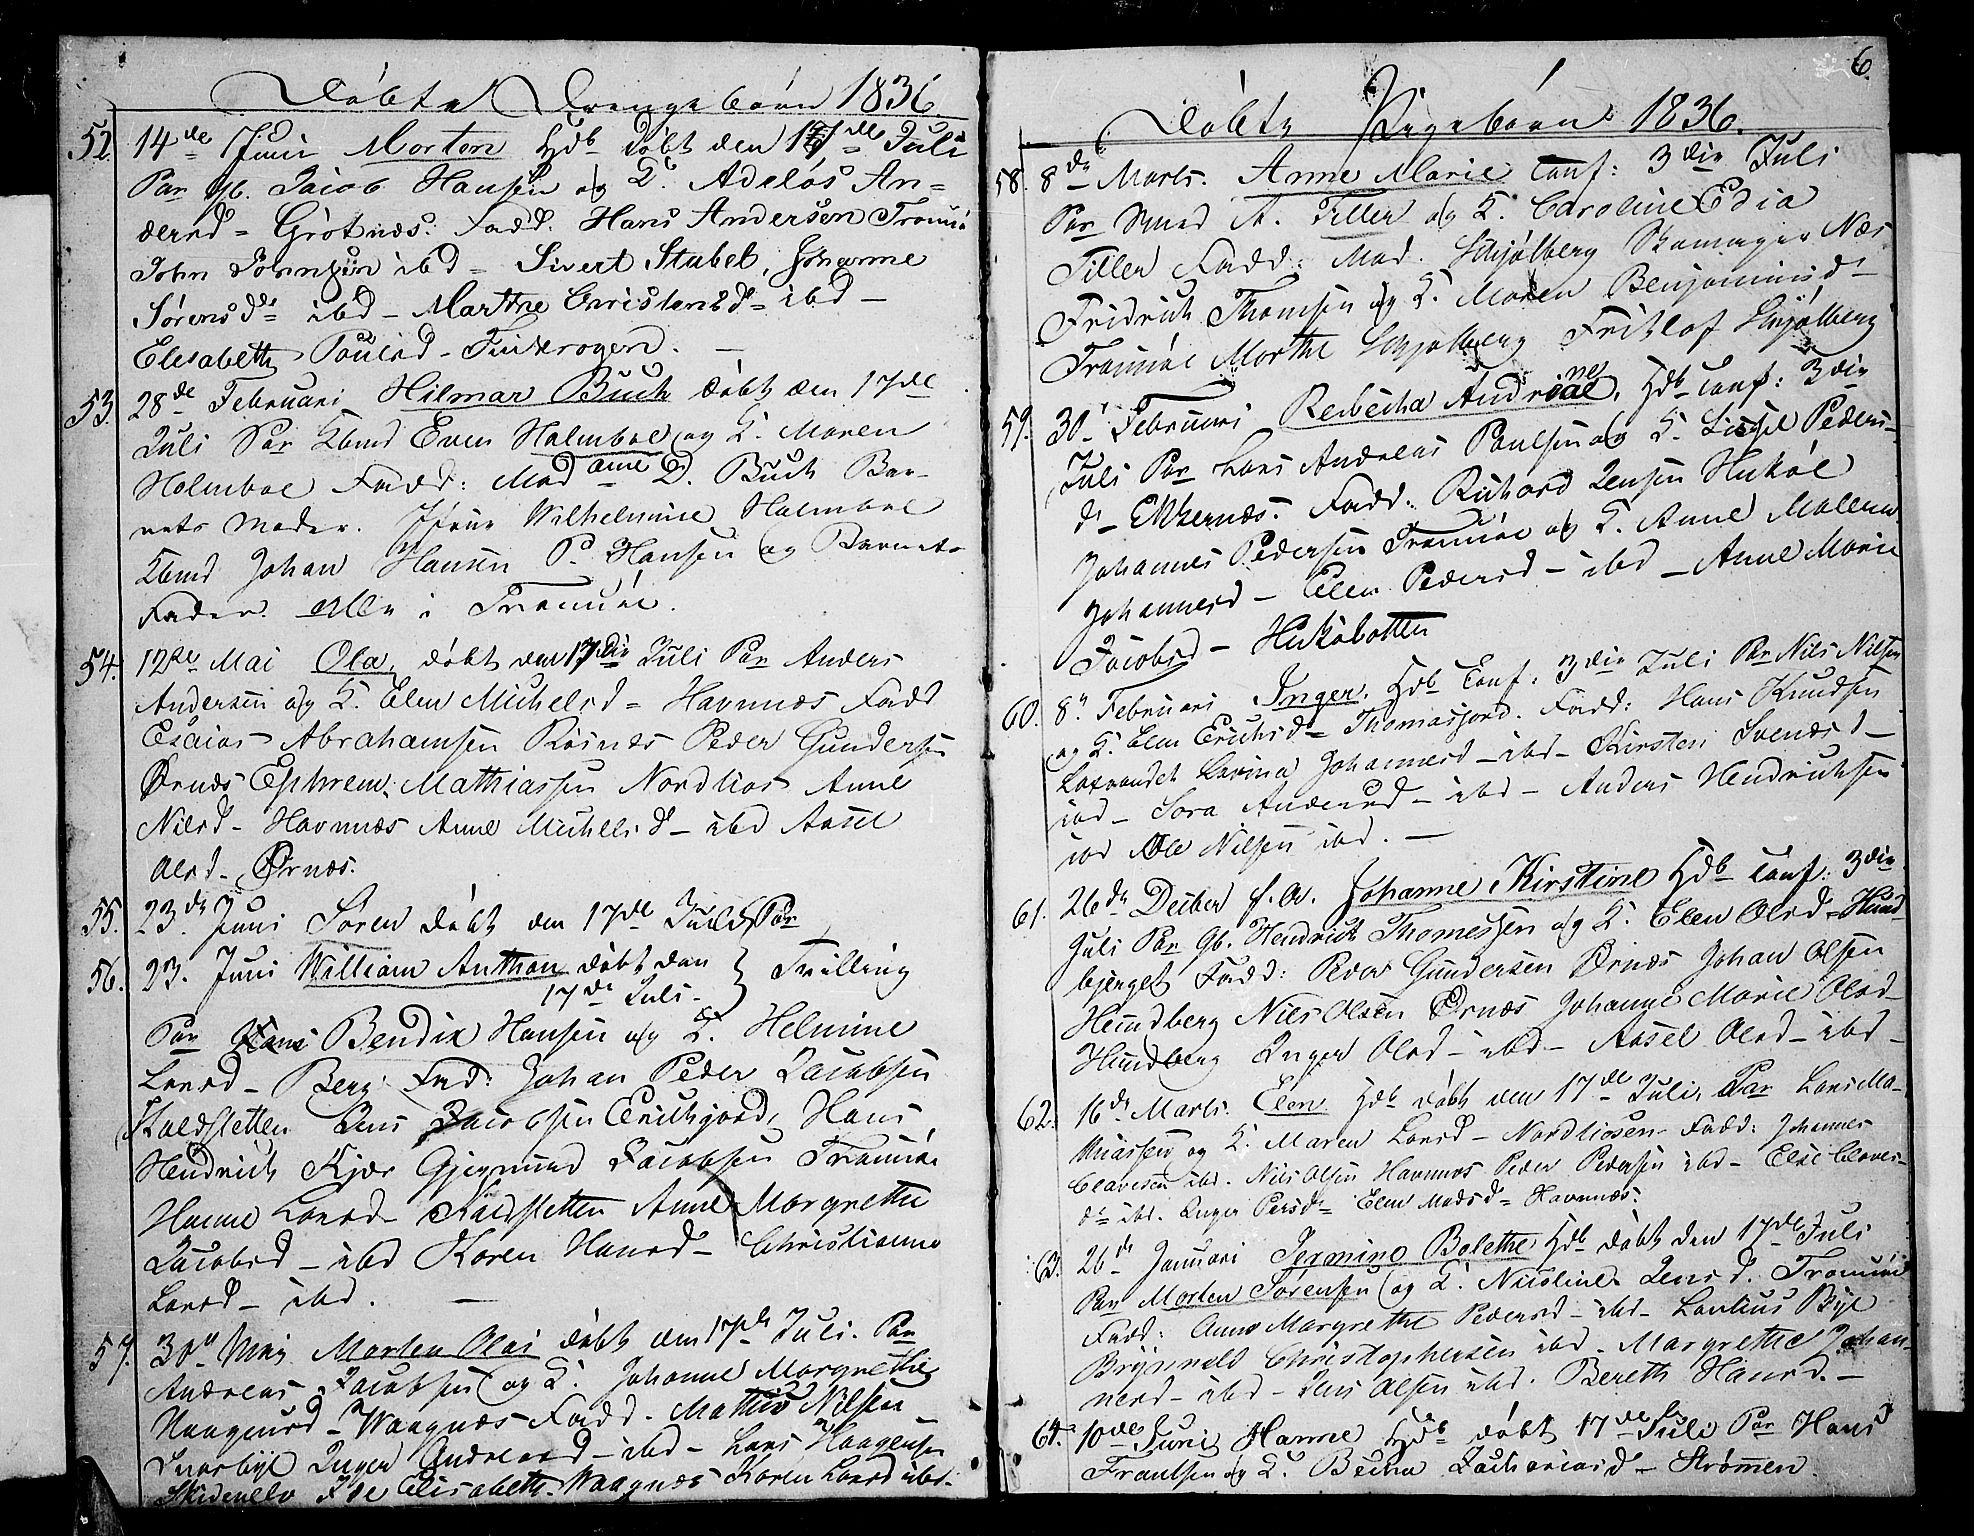 Döbte Drengebörn 1836
52. 14de Juni Morten Hdb Döbt den 17de Juli
Par Gb. Jacob Hansen og K. Adelös An=
dersd = Grötnæs. Fadd. Hans Andersen Tromsöe
John Johnsen ibd = Sivert Stabel, Johanne
Sörensd = ibd - Marthe Christensd = ibd -
Elesabeth Poulsd - Finkrogen. -
53. 28de Februari Hilmar Buch döbt den 17de
Juli Par Kbmd Even Holmboe og K. Maren
Holmboe Fadd: Madame D. Buch Bar-
nets Moder. Jfrue Wilhelmine Holmboe
Kbmd Johan Hansen P. Hansen og Barnets
Fader. Alle i Tromsöe.
54. 12te Mai Ola, döbt den 17de Juli Par Anders
Andersen og K. Elen Michelsd = Havnnæs Fadd
Esaias Abrahamsen Röinæs Peder Gundersen
Örnæs Ephrem Mathiassen Nordlios Anne
Nilsd - Havnnæs Anne Michelsd - ibd Assel
Olsd - Örnæs.
55. 23de Juni Sören döbt den 17de Juli Par
56. 23. Juni William Anthon döbt den } Tvilling
17de Juli.
Par Hans Bendix Hansen og K. Helmine
Larsd - Berg Fad: Johan Peder Jacobsen
Kaldsletten Jens Jacobsen Erichjord, Hans
Hendrich Kjær Gjegmund Jacobsen Tromsöe
Hanne Larsd - Kaldsletten Anne Margrethe
Jacobsd - ibd Karen Hansd - Christianne
Larsd - ibd. -
57. 30te Maj Morten Olai döbt den 17de Juli. Par
Andreas Jacobsen og K. Johanne Margrethe
Haagensd - Waagnæs Fadd. Mathis Nilsen
Snarbye Inger Andreasd - ibd - Lars Haagensen
Skidenelv Elisabeth Waagnæs Karen Larsd ibd.
6.
Döbte Pigebörn 1836.
58. 8de Marts. Anne Marie Conf: 3die Juli
Par Smed A. Tiller og K. Caroline Edia
Tiller Fadd: Mad. Schjölberg Skomager Næs
Fridrich Thomsen og K. Maren Benjaminsd -
Tromsöe Morthe Schjölberg Fritlof Schjölberg
59. 30. Februari Rebecha Andrine, Hdb Conf: 3die
Juli Par Lars Andreas Paulsen og K. Lissel Peders-
d - Fadd: Richard Jensen Huköe
Johannes Pedersen Tromsöe og K. Anne Malena
Johannesd - Elen Pedersd - ibd - Anne Marie
Jacobsd - Hukobotten
60. 8. Februari Inger. Hdb Conf: 3die Juli Par Nils Nilsen
og K. Elen Erichsd = Thomasjord. Fadd: Hans Knudsen
Laxvandet Lavina Johannesd - ibd - Kirsten Svensd -
ibd - Sara Andersd - ibd - Anders Hendrichsen
ibd Ole Nilsen ibd. -
61. 26de Decber f. A. Johanne Kirstine Hdb Conf: 3die
Juli Par Gb. Hendrich Thomessen og K. Elen Olsd = Hund-
bjerget Fadd: Peder Gundersen Örnæs Johan Olsen
Hundberg Nils Olsen Örnæs Johanne Marie Olsd -
Hundberg Inger Olsd - ibd - Assel Olsd - ibd -
62. 16de Marts. Elen Hdb döbt den 17de Juli, Par Lars Ma-
thiassen og K. Maren Larsd - Nordliosen Fadd: Johannes
Clavesen ibd. Nils Olsen Havnnæs Peder Pedersen ibd - Else Claves-
d = ibd. Inger Persd = Elen Madsd = Havnnæs.
63. 26de Januari Jermine Bolethe Hdb döbt den 17de Juli
Par Morten Sörensen og K. Nicoline Jensd. Tromsöe
Fadd: Anne Margrethe Pedersd - ibd - Lautius Bye
Brynnild Christophersen ibd. Margrethe Johan-
nesd - ibd - Jens Olsen ibd. Bereth Hansd. -
64. 10de Juni Hanne Hdb döbt 17de Juli Par Hans
Frantsen og K. Zachariasd - Strömmen.